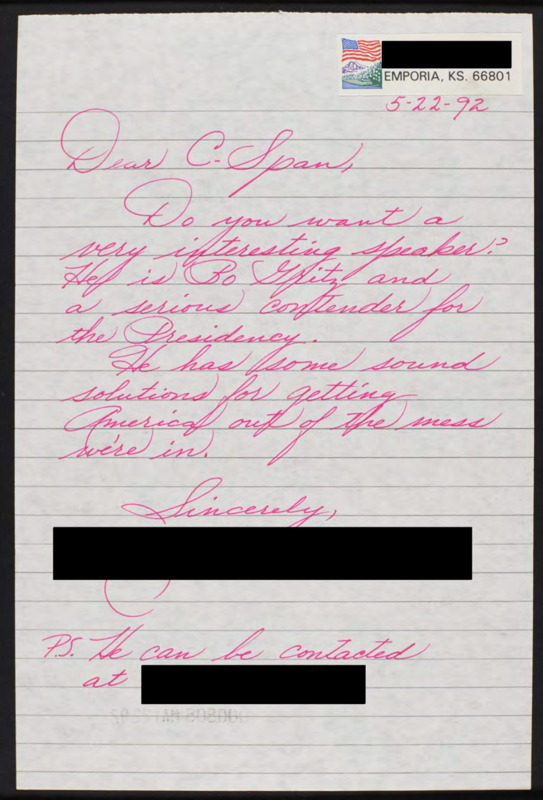 EMPORIA, KS. 66801
5-22-92
Dear C-Span,
Do you want a
very interesting speaker?
He is Bo Gritz and
a serious contender for
the Presidency.
He has some sound
solutions for getting
America out of the mess
we're in.
Sincerely,
P.S. He can be contacted
at